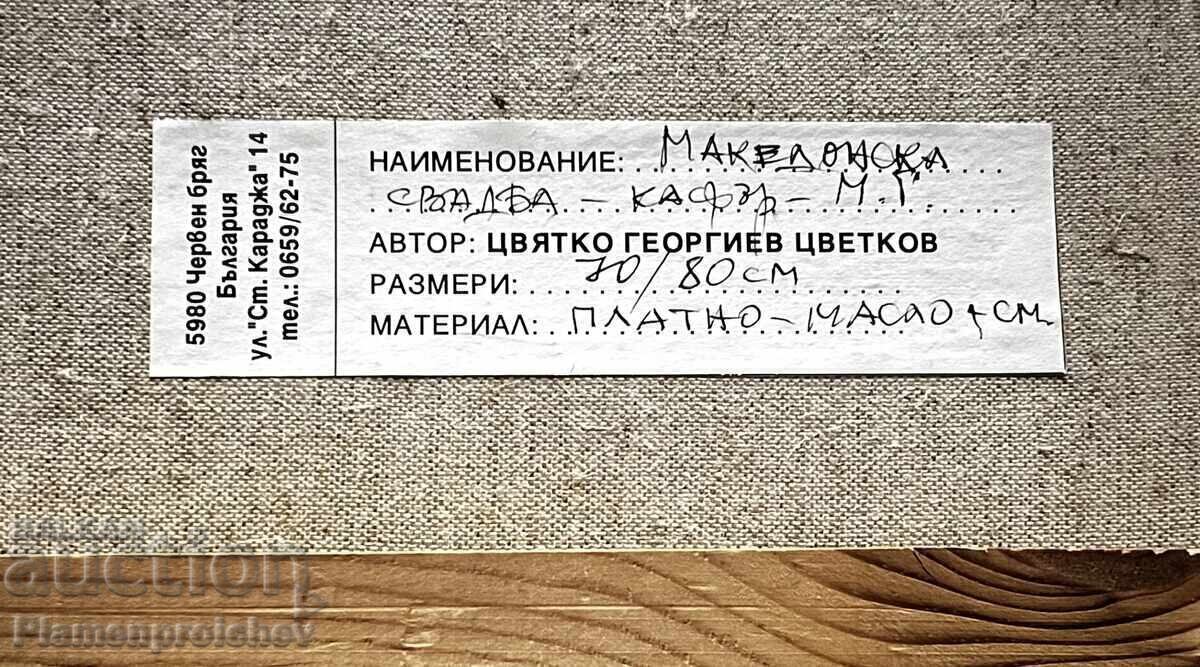 5980 Червен бряг
България
ул."Ст. Караджа" 14
тел.: 0659/62-75
НАИМЕНОВАНИЕ: МАКЕДОНСКА
СВАДБА - КАФЪР - М.Г.
АВТОР: ЦВЯТКО ГЕОРГИЕВ ЦВЕТКОВ
РАЗМЕРИ: 70/80 СМ
МАТЕРИАЛ: ПЛАТНО - МАСЛО, СМ.
BALKAN
auction
Plamenproichev